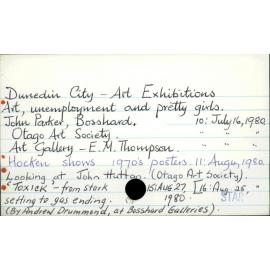 Dunedin City - Art Exhibitions
Art, unemployment and pretty girls.
John Parker, Bosshard. 10: July 16, 1980.
Otago Art Society. " " "
Art Gallery - E.M. Thompson. " " "
Hocken shows 1970's posters. 11: Aug 4, 1980.
Looking at John Hutton. (Otago Art Society).
"Toxick" - from stark 15: Aug 27, [16: Aug 25,
setting to gas ending. 1980. STAR
(By Andrew Drummond, at Bosshard Galleries).